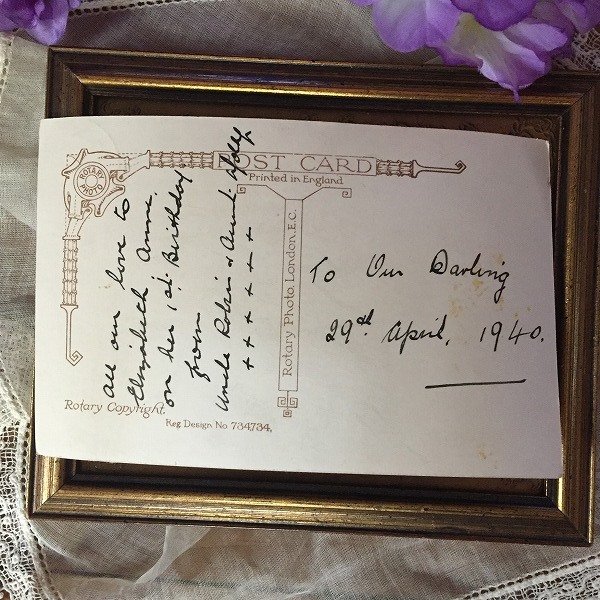 POST CARD
Printed in England
ROTARY PHOTO
Rotary Photo London. E.C.
All our love to
Elizabeth Anne.
on her 1st Birthday
from
Uncle Robin & Aunt
+ + + + + +
To Our Darling
29th April, 1940.
Rotary Copyright.
Reg. Design No 734,734.